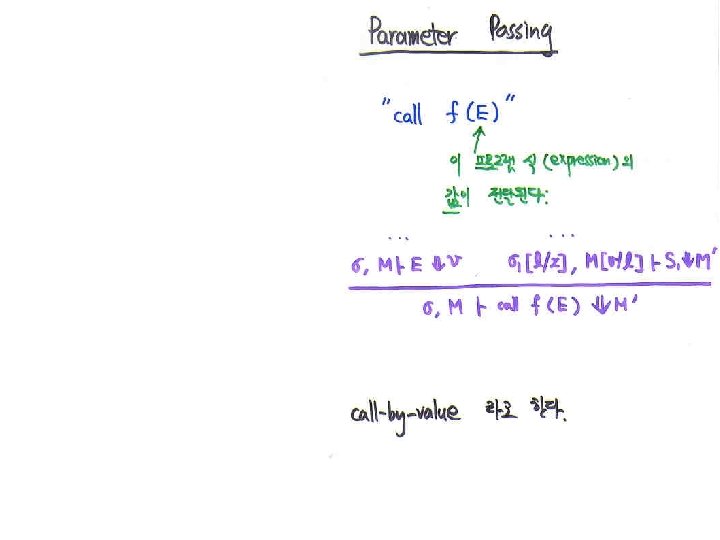 Parameter Passing
"call f(E)"
이 프로그램 식 (expression)의
값이 전달된다:
... ...
σ, M ⊢ E ⇓ v σ₁[ℓ/x], M[v/ℓ] ⊢ S₁ ⇓ M'
σ, M ⊢ call f(E) ⇓ M'
call-by-value 라고 한다.